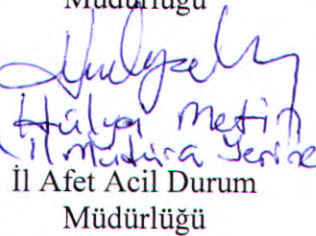 Müdürlüğü
Hülya Metin
İl Müdürü Yerine
İl Afet Acil Durum
Müdürlüğü